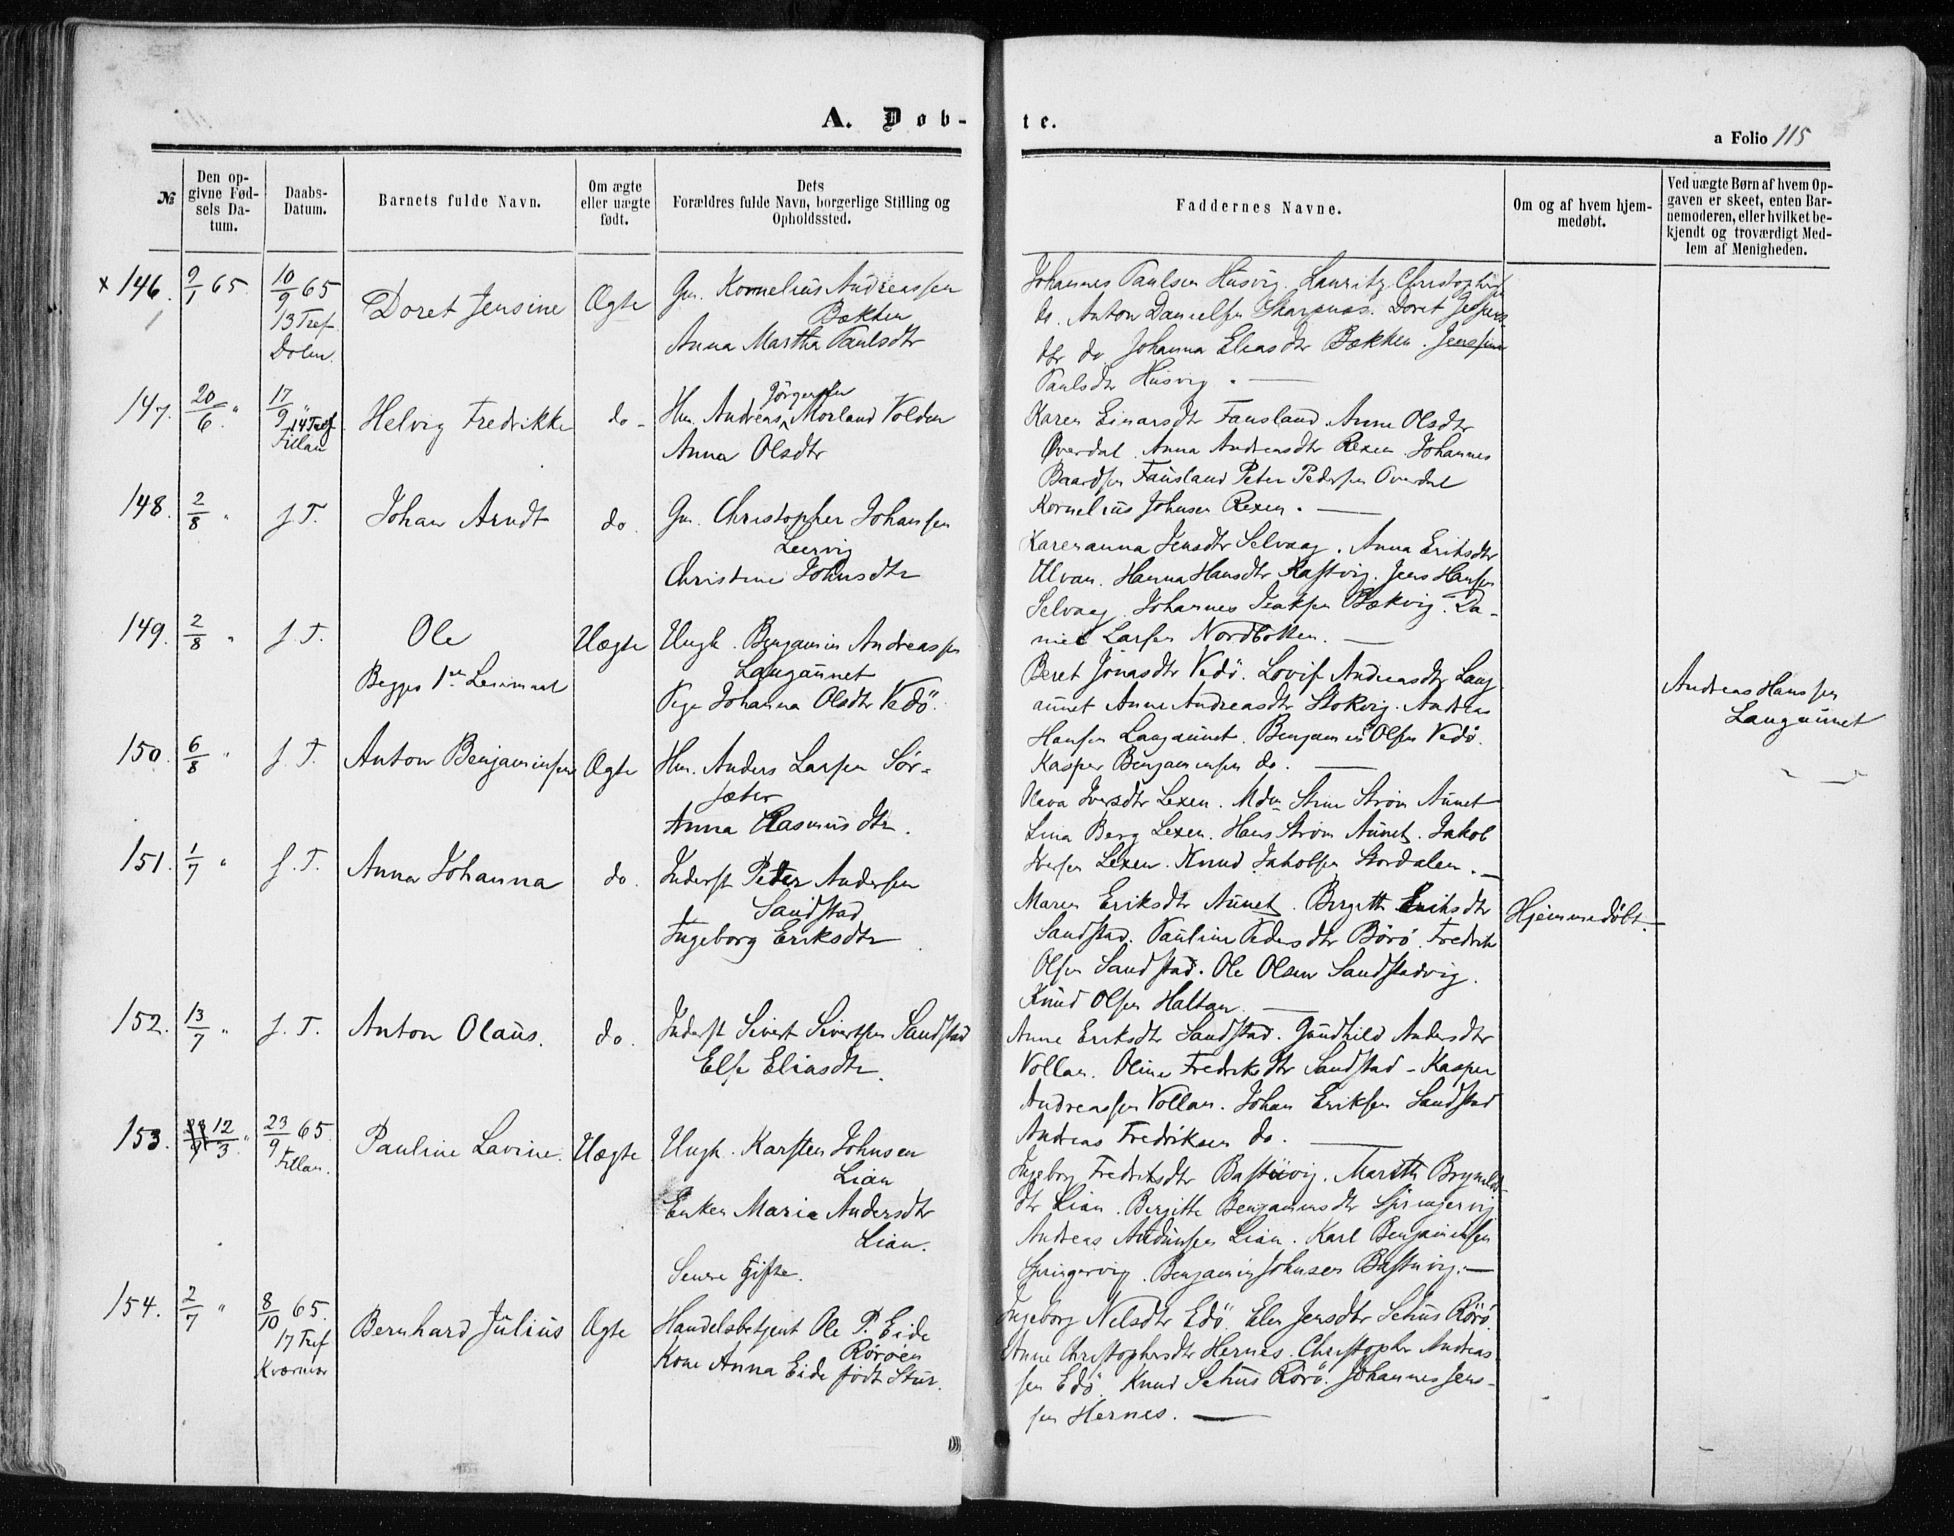 A. Døb-
te.
a Folio 115
№
Den op-
givne Fød-
sels Da-
tum.
Daabs-
Datum.
Barnets fulde Navn.
Om ægte
eller uægte
født.
Dets
Forældres fulde Navn, borgerlige Stilling og
Opholdssted.
Faddernes Navne.
Om og af hvem hjem-
medøbt.
Ved uægte Børn af hvem Op-
gaven er skeet, enten Bar-
nemoderen, eller hvilket be-
kjendt og troværdigt Med-
lem af Menigheden.
x 146. 9/1 65. 10/9 65
13 Tref.
Dolm.
Doret Jensine
Ægte
Gm. Kornelius Andreassen
Bækken
Anna Martha Paulsdtr
Johannes Paulsen Husvig. Lauritz Christophersen
do. Anton Danielsen Skarpnæs. Doret Jespers-
dtr do. Johanna Eliasdtr Bækken. Jensine
Paulsdtr Husvig. —
147. 20/6 " 17/9 "
14 Tref
Fillan
Helvig Fredrikke
do-
Jörgensen
Hm. Andreas Morland Volden
Anna Olsdtr
Karen Einarsdtr Fausland. Anne Olsdtr
Overdal. Anna Andreasdtr Rexen. Johannes
Baardsen Fausland Peter Pedersen Overdal
Kornelius Johnsen Rexen. —
148. 2/8 " J. T.
Johan Arndt
do.
Gm. Christopher Johansen
Leervig
Christine Johnsdtr
Karenanna Jensdtr Selvaag. Anna Eriksdtr
Ulvan. Hanna Hansdtr Kastvig. Jens Hansen
Selvaag. Johannes Isaksen Bækvig. Da-
niel Larsen Nordbotten. —
149. 2/8 " J. T.
Ole
Begges 1ste Leiermaal
Uægte
Ungk. Benjamin Andreassen
Langaunet
Pige Johanna Olsdtr Vedö.
Beret Jonasdtr Vedö. Lovise Andreasdtr Lang
aunet Anne Andreasdtr Stokvig. Andreas
Hansen Langaunet. Benjamin Olsen Vedö.
Kasper Benjaminsen do. —
Andreas Hansen
Langaunet
150. 6/8 " J. T.
Anton Benjaminsen
Ægte
Hm. Anders Larsen Sör-
sæter
Anna Rasmusdtr.
Olava Iversdtr Lexen. Mdm Stine Ström Aunet
Lina Berg Lexen. Hans Ström Aunet. Jakob
Iversen Lexen. Knud Jakobsen Stordalen. —
151. 1/7 " J. T.
Anna Johanna
do.
Inderst Peder Andersen
Sandstad
Ingeborg Eriksdtr
Maren Eriksdtr Aunet. Birgitte Eriksdtr
Sandstad. Pauline Pedersdtr Börö. Fredrik
Olsen Sandstad. Ole Olsen Sandstadvig.
Knud Olsen Haltan. —
Hjemmedöbt. —
152. 13/7 " J. T.
Anton Olaus.
do.
Inderst Sivert Sivertsen Sandstad
Else Eliasdtr.
Anne Eriksdtr Sandstad. Gundhild Andersdtr
Vollan. Oline Fredriksdtr Sandstad - Kasper
Andreassen Vollan. Johan Eriksen Sandstad
Andreas Fredriksen do. —
153. 12/3 " 23/9 65.
Fillan.
Pauline Lavine.
Uægte
Ungk. Karsten Johnsen
Lian
Enken Maria Andersdtr
Lian.
Senere Gifte.
Ingeborg Fredriksdtr Bastuvig. Marith Brynilds-
dtr Lian. Birgitte Benjaminsdtr Springervig
Andreas Audunsen Lian. Karl Benjaminsen
Springervig. Benjamin Johnsen Bastuvig. —
154. 2/7 " 8/10 65.
17 Tref
Kværnvær
Bernhard Julius
Ægte
Handelsbetjent Ole P. Eide
Röröen
Kone Anna Eide födt Stur.
Ingeborg Nelsdtr Edö. Elen Jensdtr Setnes Rörö.
Anne Christophersdtr Hernes. Christopher Andreas-
sen Edö. Knud Setnes Rörö. Johannes Jens-
sen Hernes. —